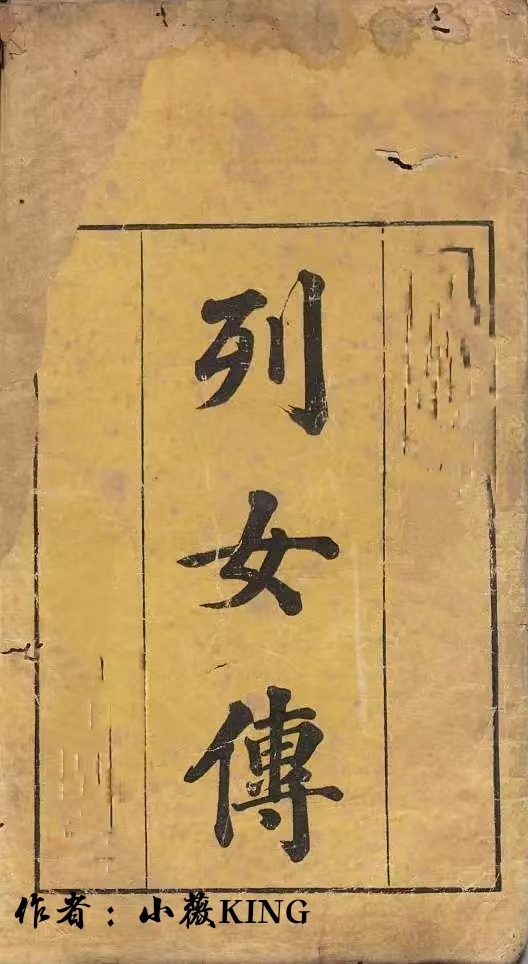 列女傳
作者：小薇KING